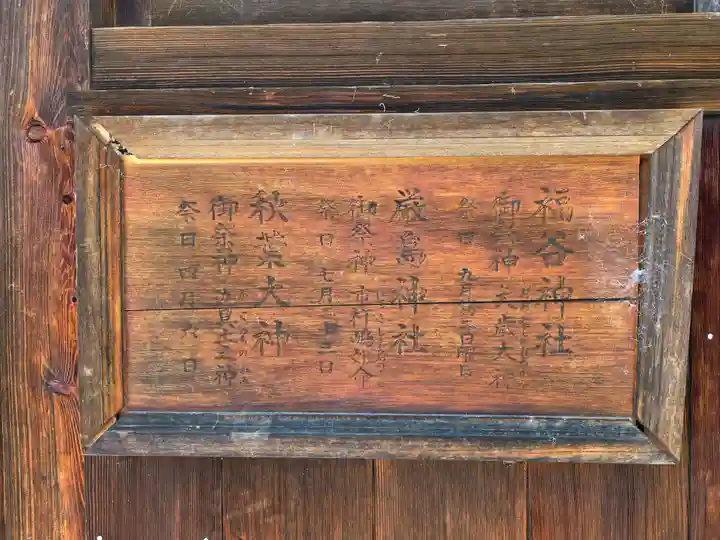 福谷神社
御祭神 大歳大神
祭日 九月第三日曜日
厳島神社
御祭神 市杵嶋列命
祭日 七月
秋葉大神
御祭神
祭日 四月六日